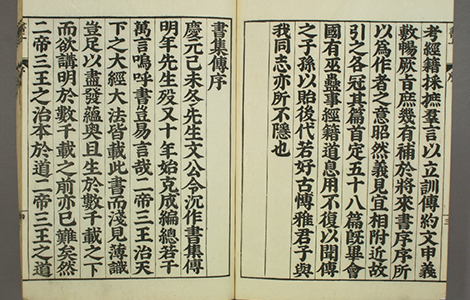 考經籍採摭羣言以立訓傳約文申義
敷暢厥旨庶幾有補於將來書序序所
以為作者之意昭然義見宜相附近故
引之各冠其篇首定五十八篇旣畢會
國有巫蠱事經籍道息用不復以聞傳
之子孫以貽後代若好古愽雅君子與
我同志亦所不隱也
書集傳序
慶元己未冬先生文公令沈作書集傳
明年先生歿又十年始克成編總若干
萬言嗚呼書豈易言哉二帝三王治天
下之大經大法皆載此書而淺見薄識
豈足以盡發蘊奥且生於數千載之下
而欲講明於數千載之前亦已難矣然
二帝三王之治本於道二帝三王之道